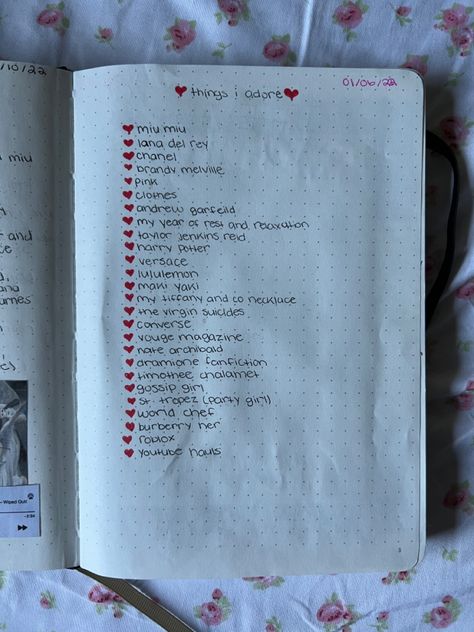 /10/22
miu
r and
ce
d,
and
– Wiped Out!
-7:34
♥ things i adore ♥
01/06/22
♥ miu miu
♥ lana del rey
♥ chanel
♥ brandy melville
♥ pink
♥ clothes
♥ andrew garfeild
♥ my year of rest and relaxation
♥ taylor jenkins reid
♥ harry potter
♥ versace
♥ lululemon
♥ maki yaki
♥ my tiffany and co necklace
♥ the virgin suicides
♥ converse
♥ vouge magazine
♥ nate archibald
♥ dramione fanfiction
♥ timothee chalamet
♥ gossip girl
♥ st. tropez (party girl)
♥ world chef
♥ burberry her
♥ roblox
♥ youtube hauls